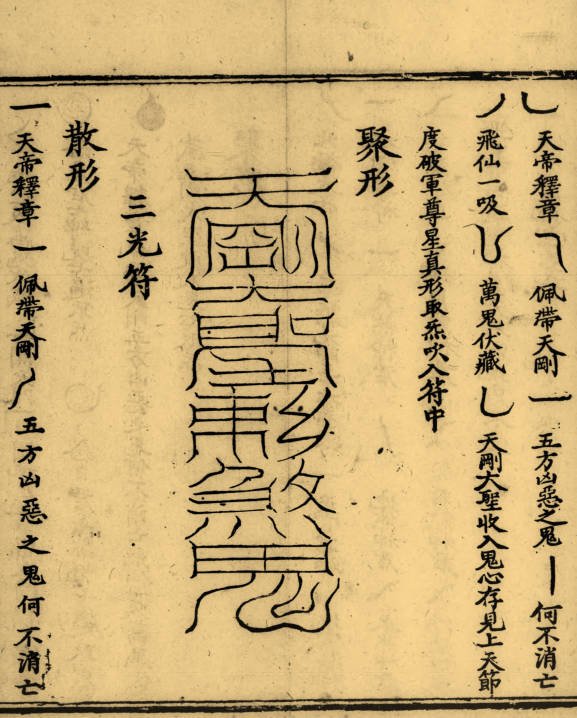 天帝釋章 ㇕ 佩帶天剛 一 五方凶惡之鬼 丨 何不消亡
飛仙一吸 萬鬼伏藏 乚 天剛大聖收入鬼心存見上天節
度破軍尊星真形取炁吹入符中
聚形
三光符
散形
一 天帝釋章 一 佩帶天剛 丿 五方凶惡之鬼何不消亡